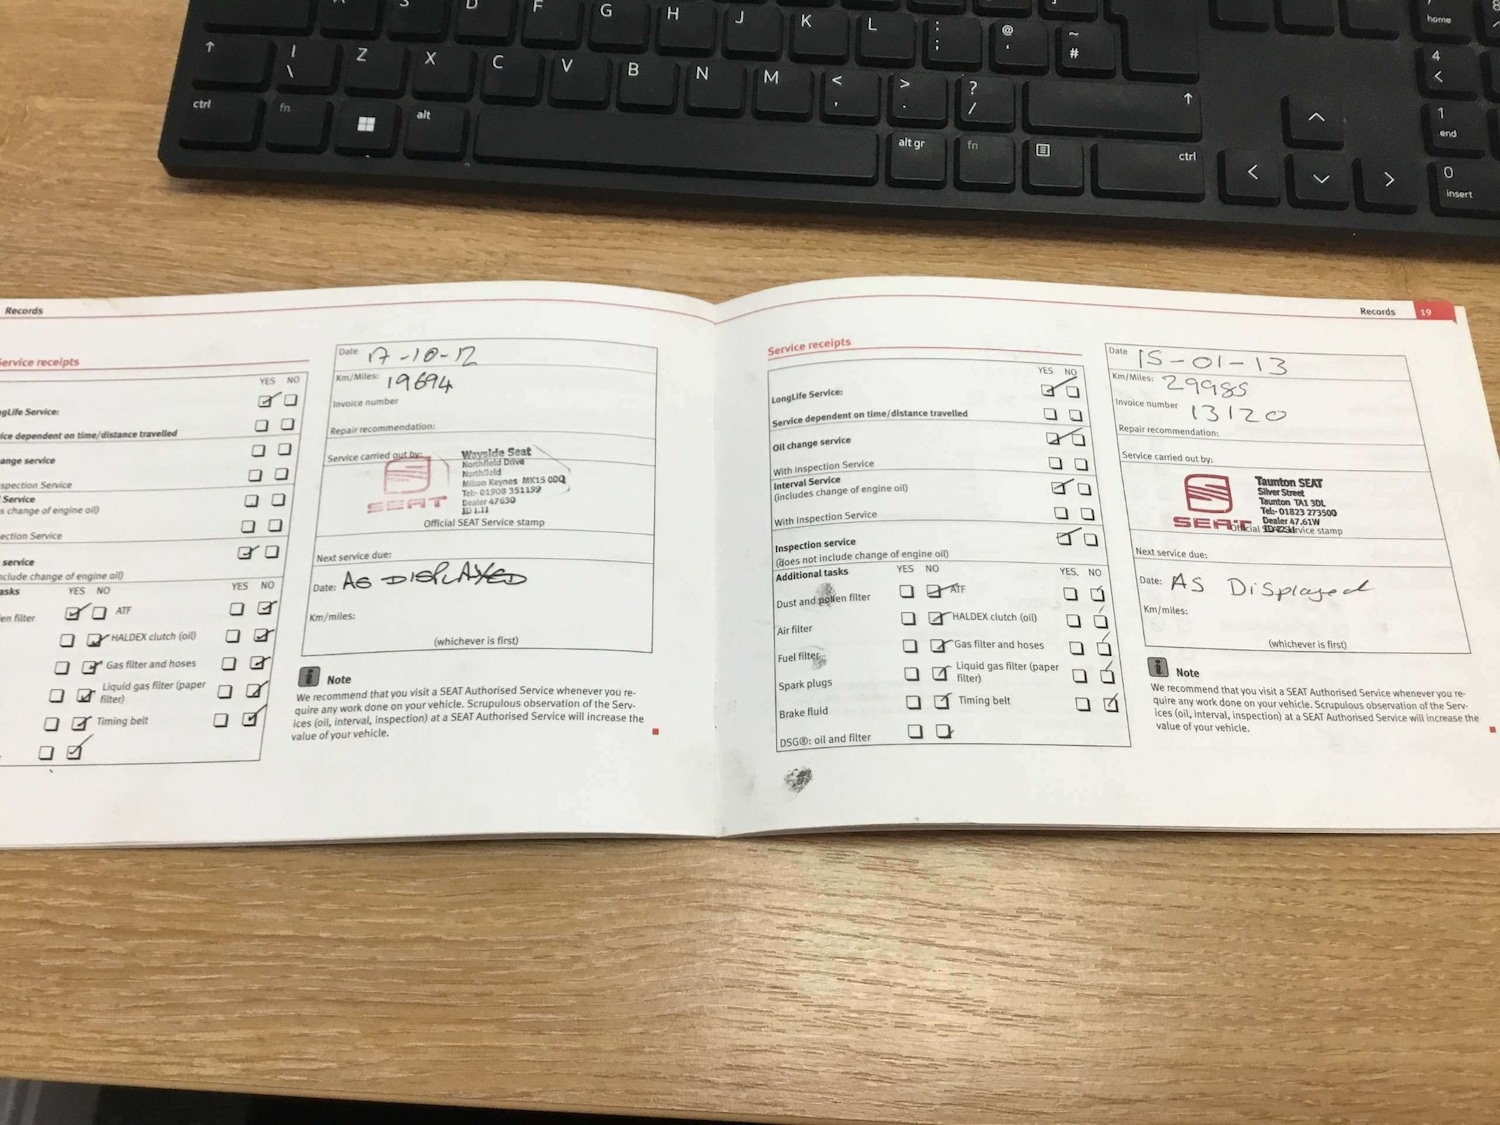 A S D F G H J K L : ; @ ' ~ #
home
4
↑ | \ Z X C V B N M < , > . ? / ↑
1
end
ctrl fn alt alt gr fn ctrl
0
insert
Records
Service receipts
YES NO
ngLife Service:
ice dependent on time/distance travelled
ange service
spection Service
Service
s change of engine oil)
ection Service
service
clude change of engine oil)
asks YES NO YES NO
en filter ATF
HALDEX clutch (oil)
Gas filter and hoses
Liquid gas filter (paper
filter)
Timing belt
Date 17-10-12
Km/Miles: 19694
Invoice number
Repair recommendation:
Service carried out by:
SEAT
Wayside Seat
Northfield Drive
Northfield
Milton Keynes MK15 0DQ
Tel:- 01908 351199
Dealer 47630
ID 1.11
Official SEAT Service stamp
Next service due:
Date: AS DISPLAYED
Km/miles:
(whichever is first)
i Note
We recommend that you visit a SEAT Authorised Service whenever you re-
quire any work done on your vehicle. Scrupulous observation of the Serv-
ices (oil, interval, inspection) at a SEAT Authorised Service will increase the
value of your vehicle.
Records 19
Service receipts
YES NO
LongLife Service:
Service dependent on time/distance travelled
Oil change service
With Inspection Service
Interval Service
(includes change of engine oil)
With Inspection Service
Inspection service
(does not include change of engine oil)
Additional tasks YES NO YES NO
Dust and pollen filter ATF
Air filter HALDEX clutch (oil)
Fuel filter Gas filter and hoses
Spark plugs Liquid gas filter (paper
filter)
Brake fluid Timing belt
DSG®: oil and filter
Date 15-01-13
Km/Miles: 29985
Invoice number 13120
Repair recommendation:
Service carried out by:
SEAT
Taunton SEAT
Silver Street
Taunton TA1 3DL
Tel:- 01823 273500
Dealer 47.61W
Official SEAT Service stamp
Next service due:
Date: AS Displayed
Km/miles:
(whichever is first)
i Note
We recommend that you visit a SEAT Authorised Service whenever you re-
quire any work done on your vehicle. Scrupulous observation of the Serv-
ices (oil, interval, inspection) at a SEAT Authorised Service will increase the
value of your vehicle.